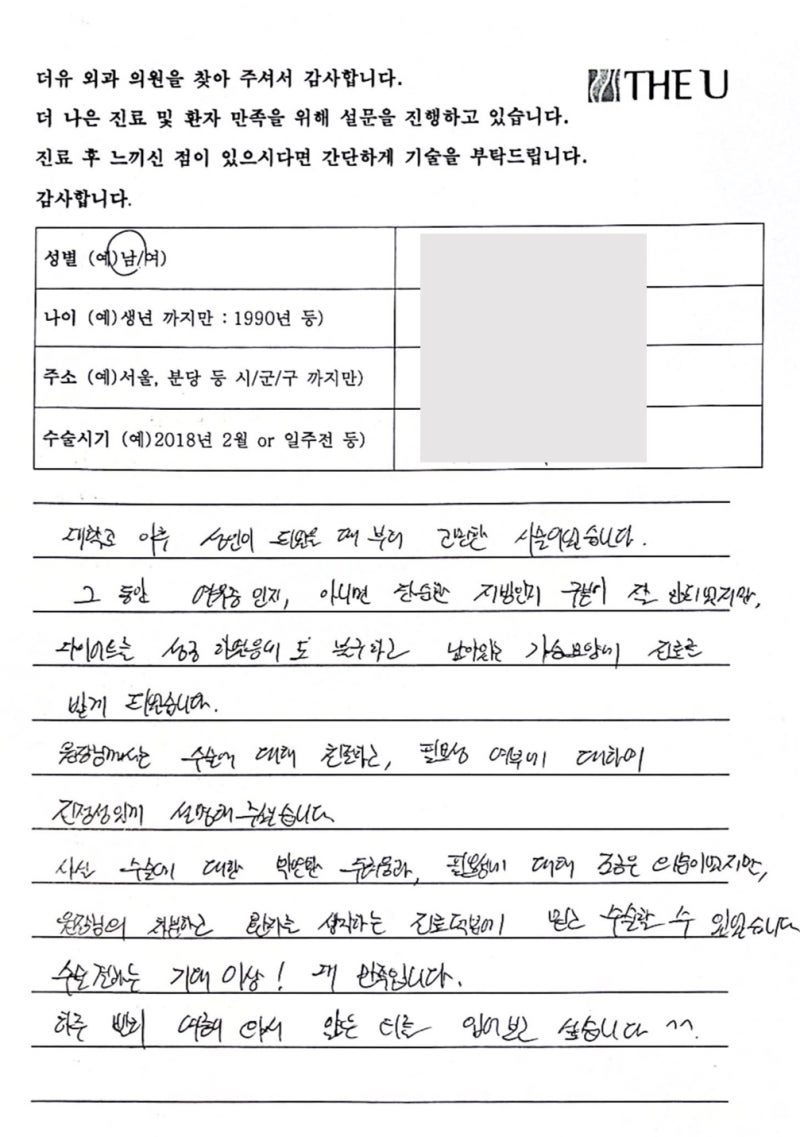 더유 외과 의원을 찾아 주셔서 감사합니다.
THE U
더 나은 진료 및 환자 만족을 위해 설문을 진행하고 있습니다.
진료 후 느끼신 점이 있으시다면 간단하게 기술을 부탁드립니다.
감사합니다.
성별 (예)남/여)
나이 (예)생년 까지만 : 1990년 등)
주소 (예)서울, 분당 등 시/군/구 까지만)
수술시기 (예)2018년 2월 or 일주전 등)
대학교 이후 성인이 되었을 때 부터 고민한 시술이었습니다.
그 동안 여유증 인지, 아니면 단순한 지방인지 구분이 잘 안되었지만,
다이어트를 성공 하였음에도 불구하고 남아있는 가슴모양에 진료를
받게 되었습니다.
원장님께서는 수술에 대해 친절하고, 필요성 여부에 대하여
진정성있게 설명해 주셨습니다
사실 수술에 대한 막연한 두려움과, 필요성에 대해 조금은 의심이었지만,
원장님의 차분하고 환자를 생각하는 진료덕분에 믿고 수술할 수 있었습니다
수술 결과는 기대 이상! 대 만족입니다.
하루 빨리 여름이 와서 얇은 티를 입어보고 싶습니다 ^^.